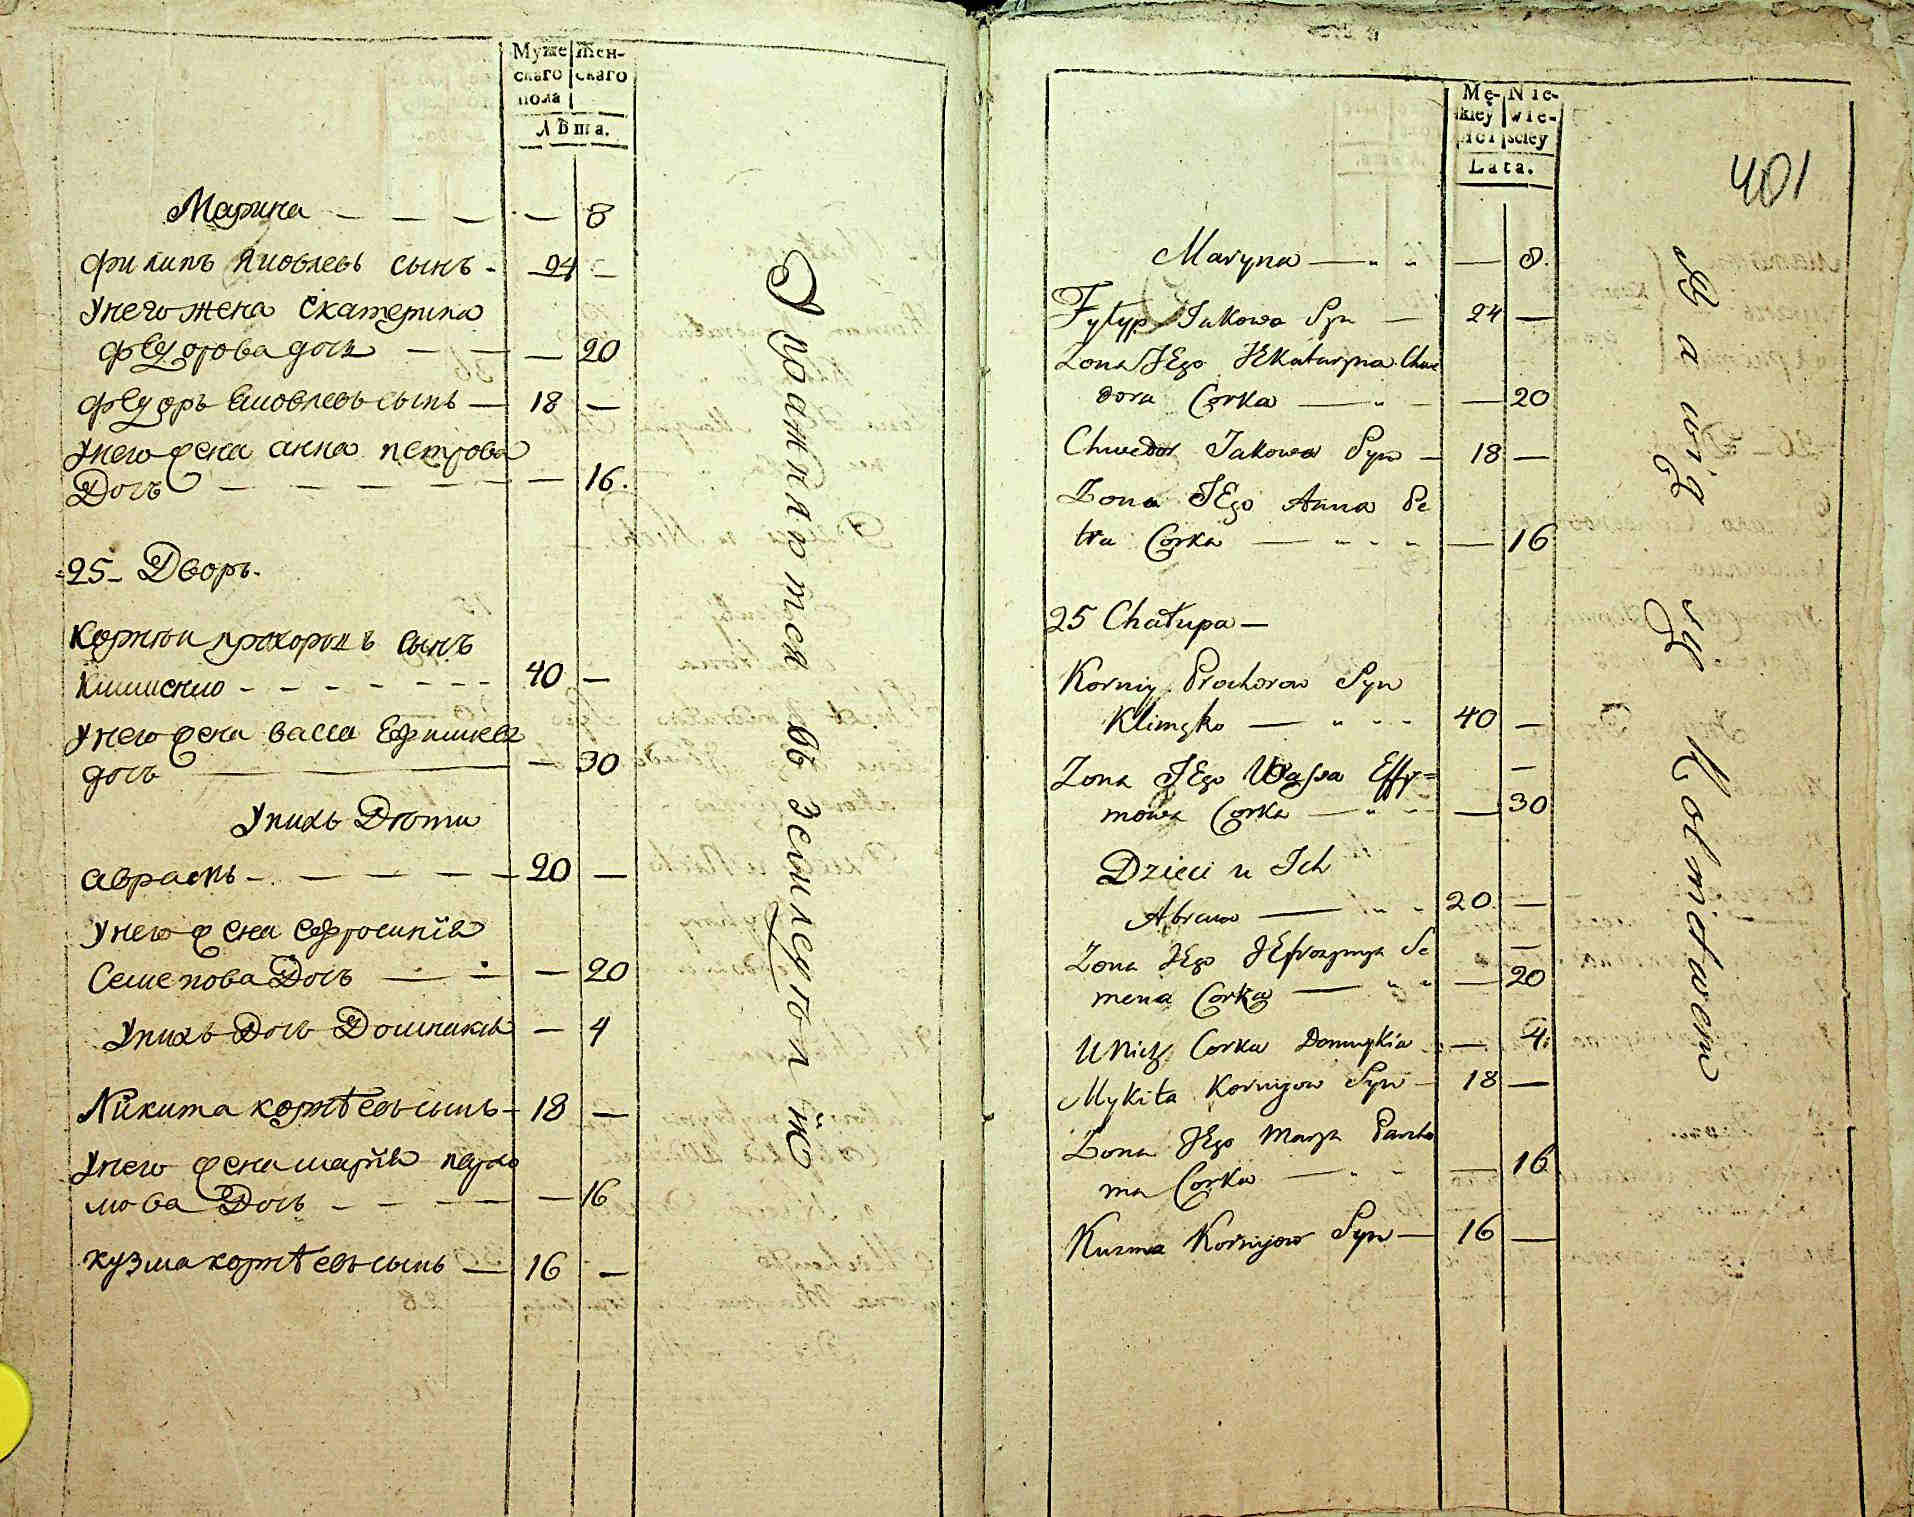 Муже Жен-
скаго скаго
пола
Лѣта.
Марина — — — — 8
Филипъ Яковлевъ сынъ - 24 —
Унего жена Екатерина
Федорова дочь — — — 20
Федоръ Яковлевъ сынъ — 18 —
Унего жена анна петрова
Дочь — — — — — — 16.
25 - Дворъ.
Корнеи прохоровъ сынъ
Климскио - - - - - - - 40 —
Унего жена васса Ефимова
дочь — — 30
Унихъ Дети
авраамъ - — — — — 20 —
Унего жена ефросиния
Семенова Дочь — — — 20
Унихъ Дочь Домникия — 4
Никита корнѣевъ сынъ - 18 —
Унего жена мария пархо
мова Дочь - — — — — 16
кузма корнѣевъ сынъ — 16 —
Упражняются въ земледѣлїи
401
Mę- Nie-
kiey wie-
płci sciey
Lata.
Maryna — „ „ — 8.
Fylyp Jakowa Syn — 24 —
Zona JEgo JEkataryna Chwe
dora Corka — „ — — 20
Chwedor Jakowa Syn — 18 —
Zona JEgo Anna Pe
tra Corka — „ „ „ — 16
25 Chałupa —
Korniy Prochorow Syn
Klimzko — „ „ „ 40 —
Zona JEgo Wassa Effy=
mowa Corka — „ — — 30
Dzieci u Ich
Abram — „ „ 20. —
Zona JEgo JEfrozynya Se
mena Corka — „ „ — 20
U Nich Corka Domnykia — 4.
Mykita Kornijow Syn — 18 —
Zona JEgo Marya Parcho
ma Corka — „ „ — 16
Kuzma Kornijow Syn — 16 —
Bawią się Rolnictwem